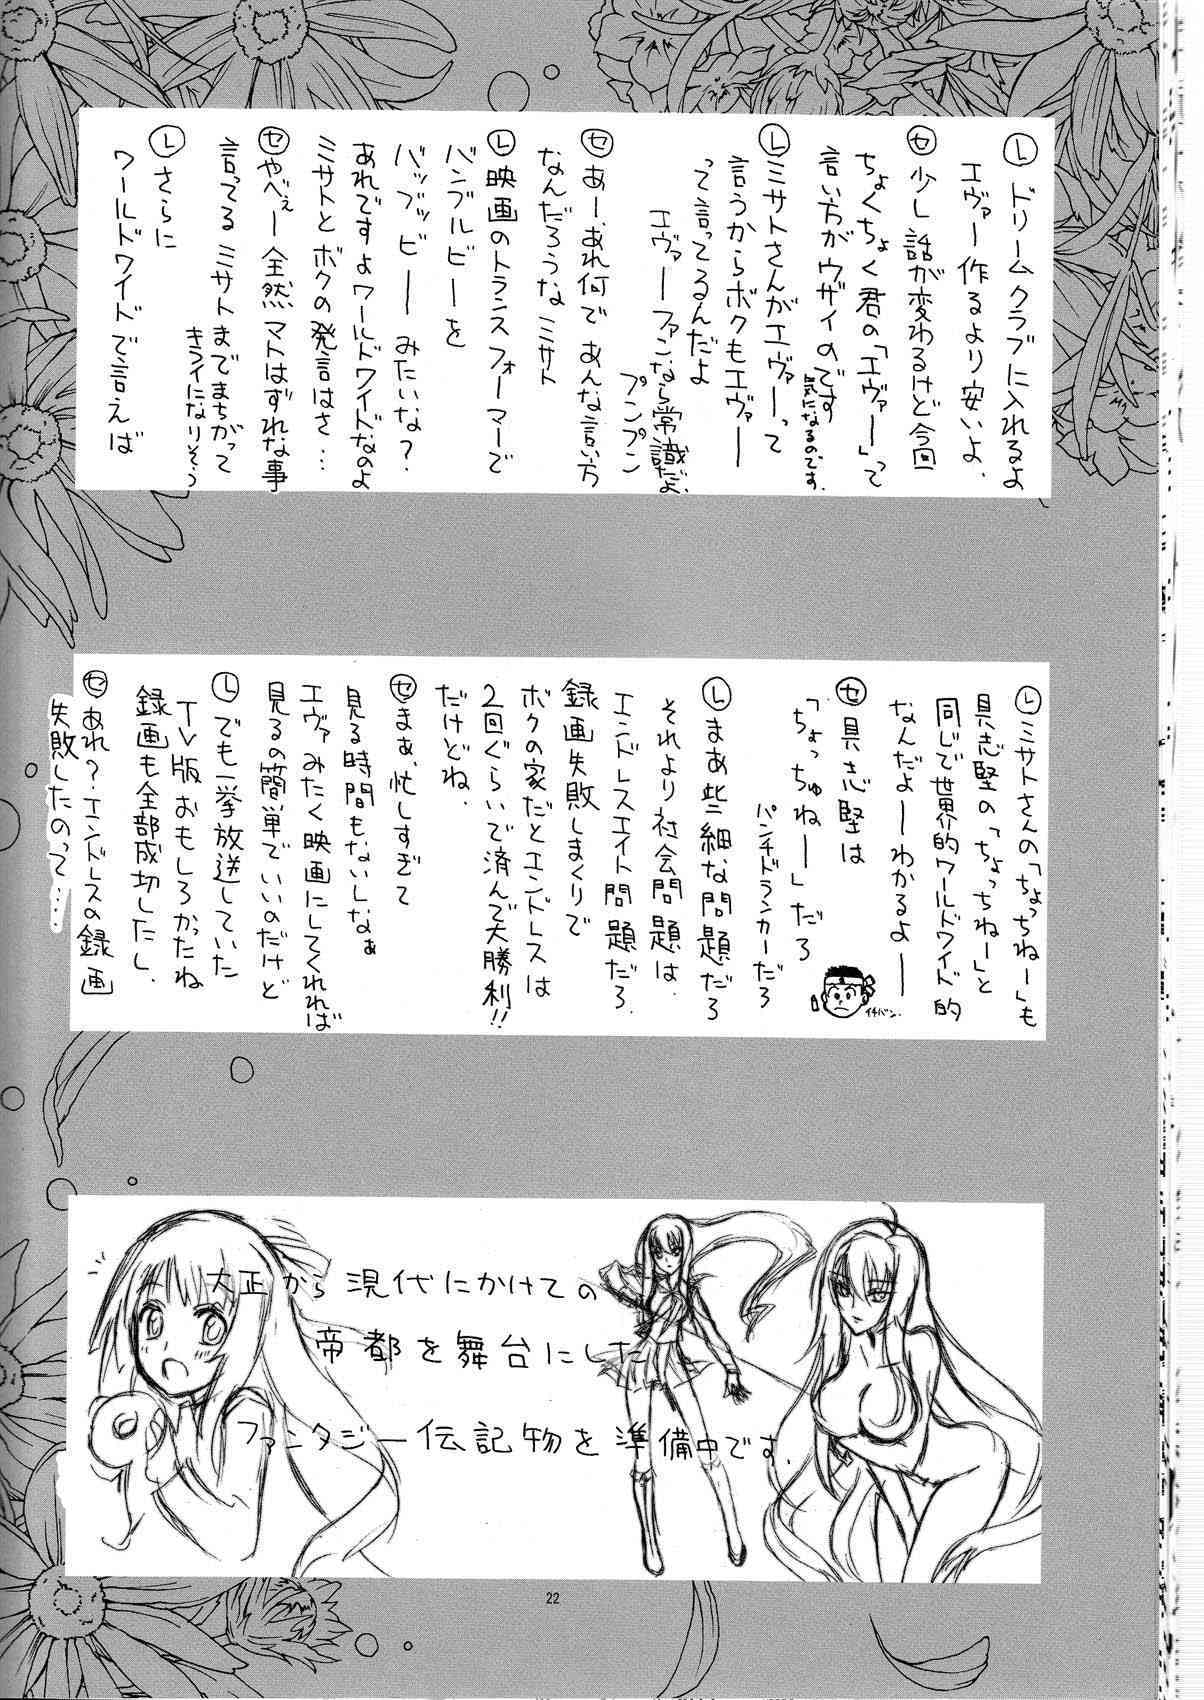 Ⓛドリームクラブに入れるよ
エヴァー作るより安いよ、
セ少し話が変わるけど今回
ちょくちょく君の「エヴァー」って
言い方がウザイのです
気になるのです、
Ⓛミサトさんがエヴァーって
言うからボクもエヴァー
って言ってるんだよ
エヴァーファンなら常識だよ、
プンプン
セあー、あれ何であんな言い方
なんだろうなミサト
Ⓛ映画のトランスフォーマーで
バンブルビーを
バッブッビーみたいな?
あれですよワールドワイドなのよ
ミサトとボクの発言はさ…
セやべぇー全然マトはずれな事
言ってるミサトまでまちがって
キライになりそう
Ⓛさらに
ワールドワイドで言えば
Ⓛミサトさんの「ちょっちねー」も
具志堅の「ちょっちねー」と
同じで世界的ワールドワイド的
なんだよーわかるよー
セ具志堅は
「ちょっちゅねー」だろ
パンチドランカーだろ
イチバン、
Ⓛまあ些細な問題だろ
それより社会問題は、
エンドレスエイト問題だろ、
録画失敗しまくりで
ボクの家だとエンドレスは
2回ぐらいで済んで大勝利!!
だけどね、
セまぁ、忙しすぎて
見る時間もないしなぁ
エヴァみたく映画にしてくれれば
見るの簡単でいいのだけど
Ⓛでも一挙放送していた
TV版おもしろかったね
録画も全部成功したし、
セあれ?エンドレスの録画
失敗したのって…
大正から現代にかけての
帝都を舞台にした
ファンタジー伝記物を準備中です、
22